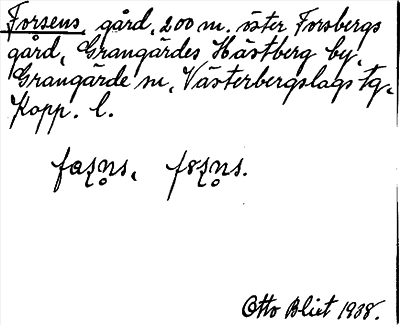 Forsens gård, 200 m. öster Forsbergs
gård, Grangärdes Hästberg by,
Grangärde sn, Västerbergslags tg,
Kopp. l.
Otto Blixt 1938.